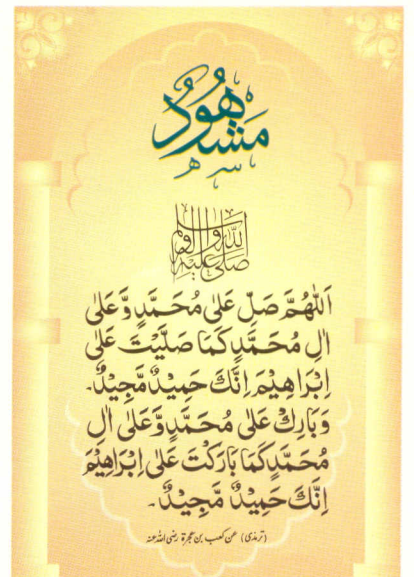 مَشْهُودٌ
صلى الله عليه وآله وسلم
اَللّٰهُمَّ صَلِّ عَلٰى مُحَمَّدٍ وَّ عَلٰى
اٰلِ مُحَمَّدٍ كَمَا صَلَّيْتَ عَلٰى
اِبْرَاهِيْمَ اِنَّكَ حَمِيْدٌ مَّجِيْدٌ۔
وَبَارِكْ عَلٰى مُحَمَّدٍ وَّعَلٰى اٰلِ
مُحَمَّدٍ كَمَا بَارَكْتَ عَلٰى اِبْرَاهِيْمَ
اِنَّكَ حَمِيْدٌ مَّجِيْدٌ۔
(ترمذی) عن کعب بن عجرۃ رضی اللہ عنہ